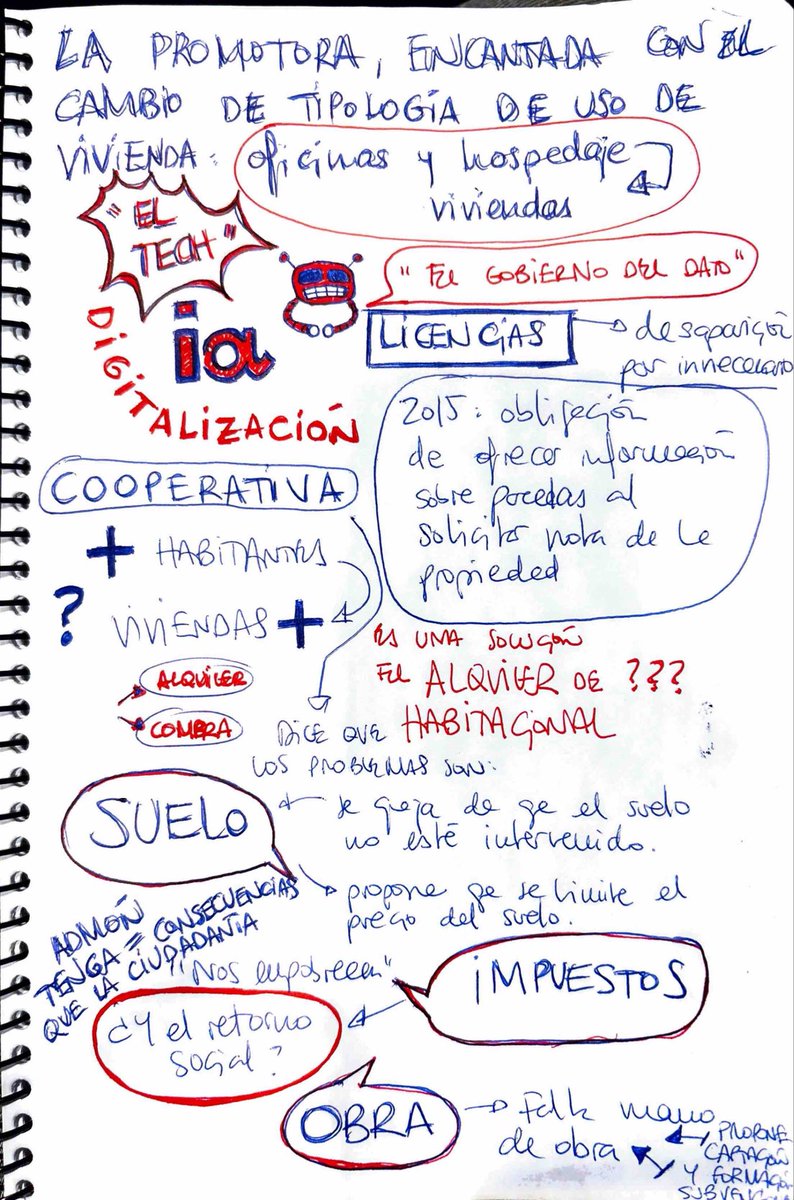 LA PROMOTORA, ENCANTADA CON EL
CAMBIO DE TIPOLOGÍA DE USO DE
VIVIENDA: oficinas y hospedaje
viviendas
"EL
TECH"
"EL GOBIERNO DEL DATO"
ia
DIGITALIZACIÓN
LICENCIAS
desaparición
por innecesario
2015: obligación
de ofrecer información
sobre parcelas al
solicitar nota de la
propiedad
COOPERATIVA
+ HABITANTES
? VIVIENDAS +
ALQUILER
COMPRA
ES UNA SOLUCIÓN
EL ALQUILER DE ???
HABITACIONAL
DICE QUE
LOS PROBLEMAS SON:
SUELO
se queja de qe el suelo
no esté intervenido.
propone qe se limite el
precio del suelo.
ADMÓN
TENGA = CONSECUENCIAS
QUE LA CIUDADANÍA
"Nos empobrecen"
IMPUESTOS
¿Y el retorno
social?
OBRA
Falta mano
de obra
PROPONE
CAPTACIÓN
Y FORMACIÓN